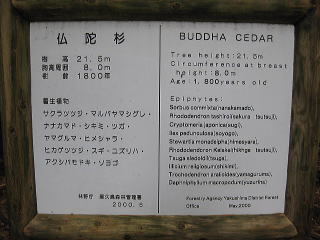 仏陀杉
樹 高 21.5m
胸高周囲 8.0m
樹 齢 1800年
着生植物
サクラツツジ・マルバヤマシグレ・
ナナカマド・シキミ・ツガ・
ヤマグルマ・ヒメシャラ・
ヒカゲツツジ・スギ・ユズリハ・
アクシバモドキ・ソヨゴ
林野庁 屋久島森林管理署
2000.5
BUDDHA CEDAR
Tree height:21.5m
Circumference at breast
height:8.0m
Age:1,800years old
Epiphytes:
Sorbus commixta(nanakamado),
Rhododendron tashiroi(sakura tsutsuji),
Cryptomeria japonica(sugi),
Ilex pedunculosa(soyogo),
Stewartia monadelpha(himesyara),
Rhododendron Keiskei(hikage tsutsuji),
Tsuga sieboldii(tsuga),
Illicium religiosum(shikimi),
Trochodendron aralioides(yamaguruma),
Daphniphyllum macropodum(yuzuriha)
Forestry Agency Yakushima District Forest
Office May.2000